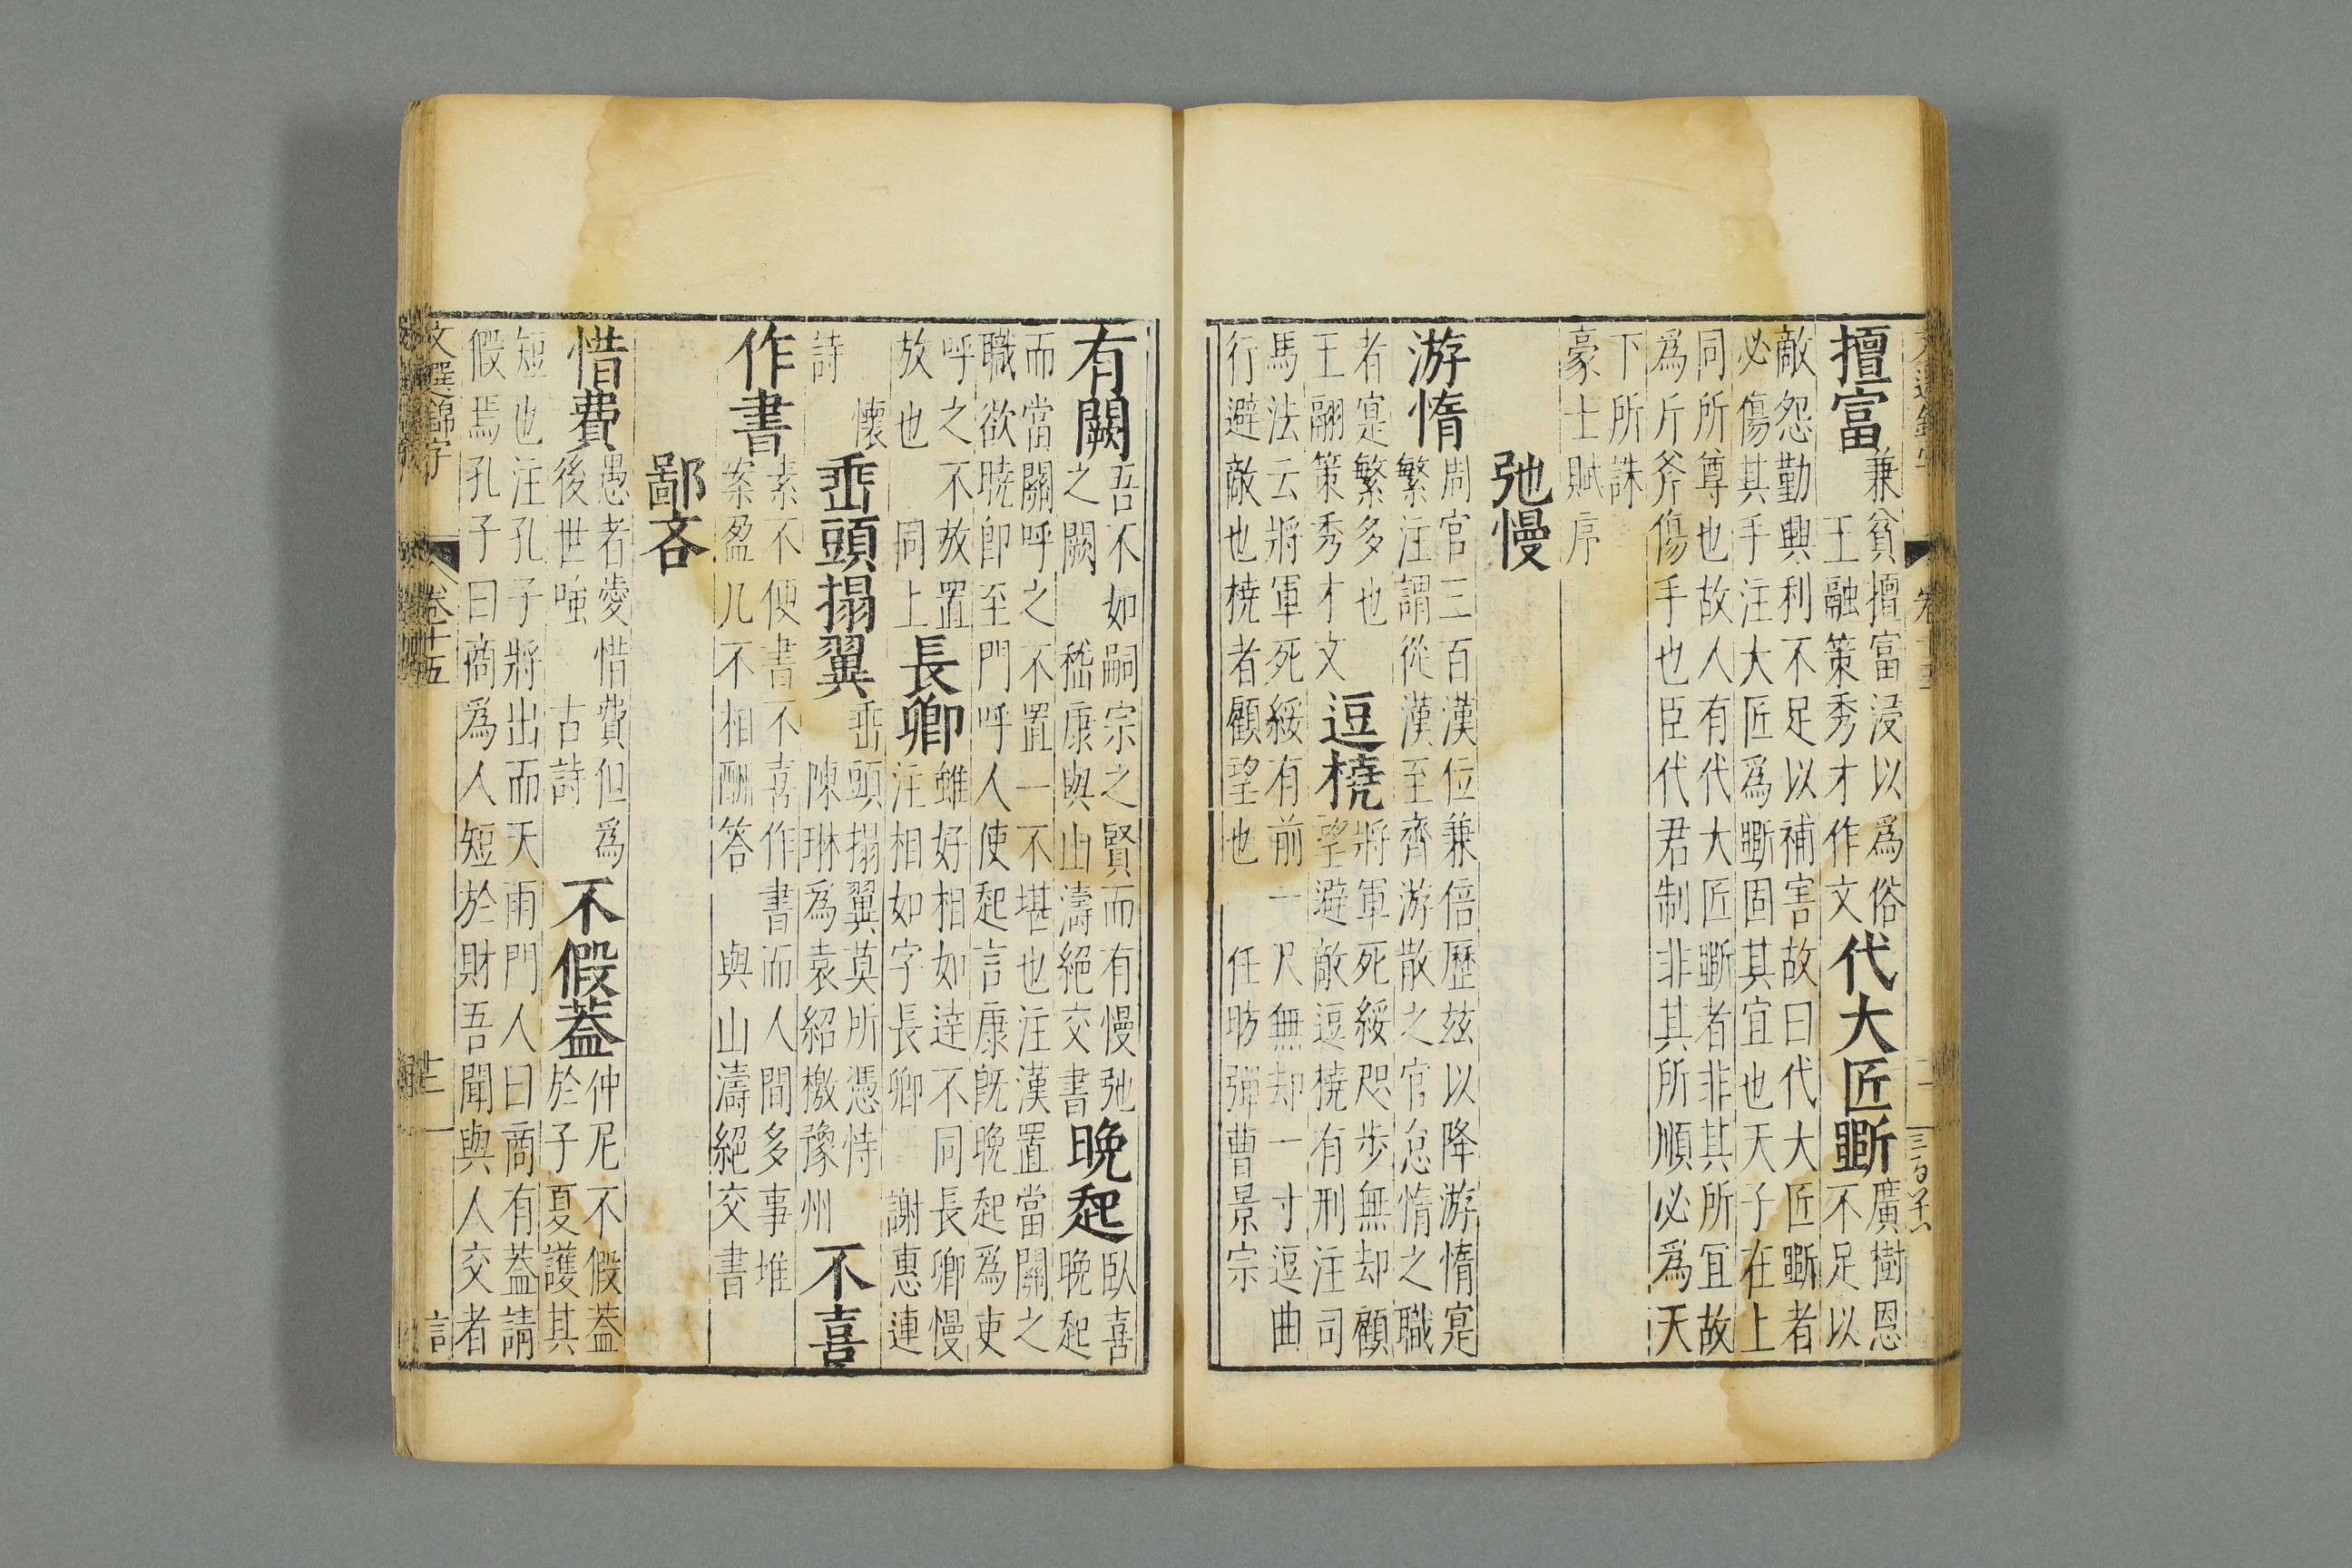 擅富兼貧擅富浸以爲俗王融策秀才作文代大匠斲廣樹恩不足以
敵怨勤興利不足以補害故曰代大匠斲者
必傷其手注大匠爲斲固其宜也天子在上
同所尊也故人有代大匠斲者非其所宜故
爲斤斧傷手也臣代君制非其所順必爲天
下所誅
豪士賦序
弛慢
游惰周官三百漢位兼倍歷兹以降游惰寔繁注謂從漢至齊游散之官怠惰之職
者寔繁多也
王融策秀才文
逗橈將軍死綏咫步無却顧望避敵逗橈有刑注司
馬法云將軍死綏有前一尺無却一寸逗曲
行避敵也橈者顧望也　任昉彈曹景宗
有闕吾不如嗣宗之賢而有慢弛之闕　嵇康與山濤絕交書晚起臥喜晚起
而當關呼之不置一不堪也注漢置當關之
職欲曉卽至門呼人使起言康旣晚起爲吏
呼之不放置
放也　同上長卿雖好相如達不同長卿慢注相如字長卿　謝惠連
詩　懷
垂頭搨翼垂頭搨翼莫所憑恃陳琳爲袁紹檄豫州不喜
作書素不便書不喜作書而人間多事堆案盈几不相酬答　與山濤絕交書
鄙吝
惜費愚者愛惜費但爲後世嗤　古詩不假蓋仲尼不假蓋於子夏護其
短也注孔子將出而天雨門人曰商有蓋請
假焉孔子曰商爲人短於財吾聞與人交者
文選錦字　卷十五　言